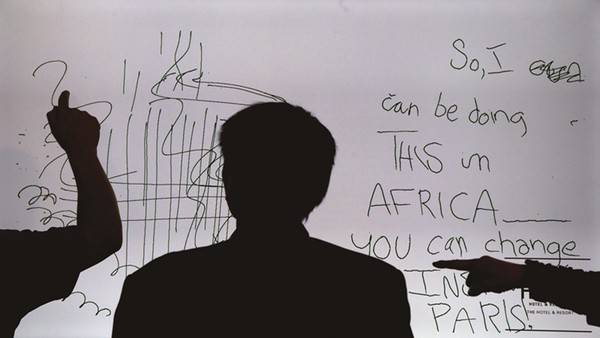 So, I
can be doing
THIS in
AFRICA
YOU can change
PARIS!
HOTEL &
THE HOTEL & RESORT